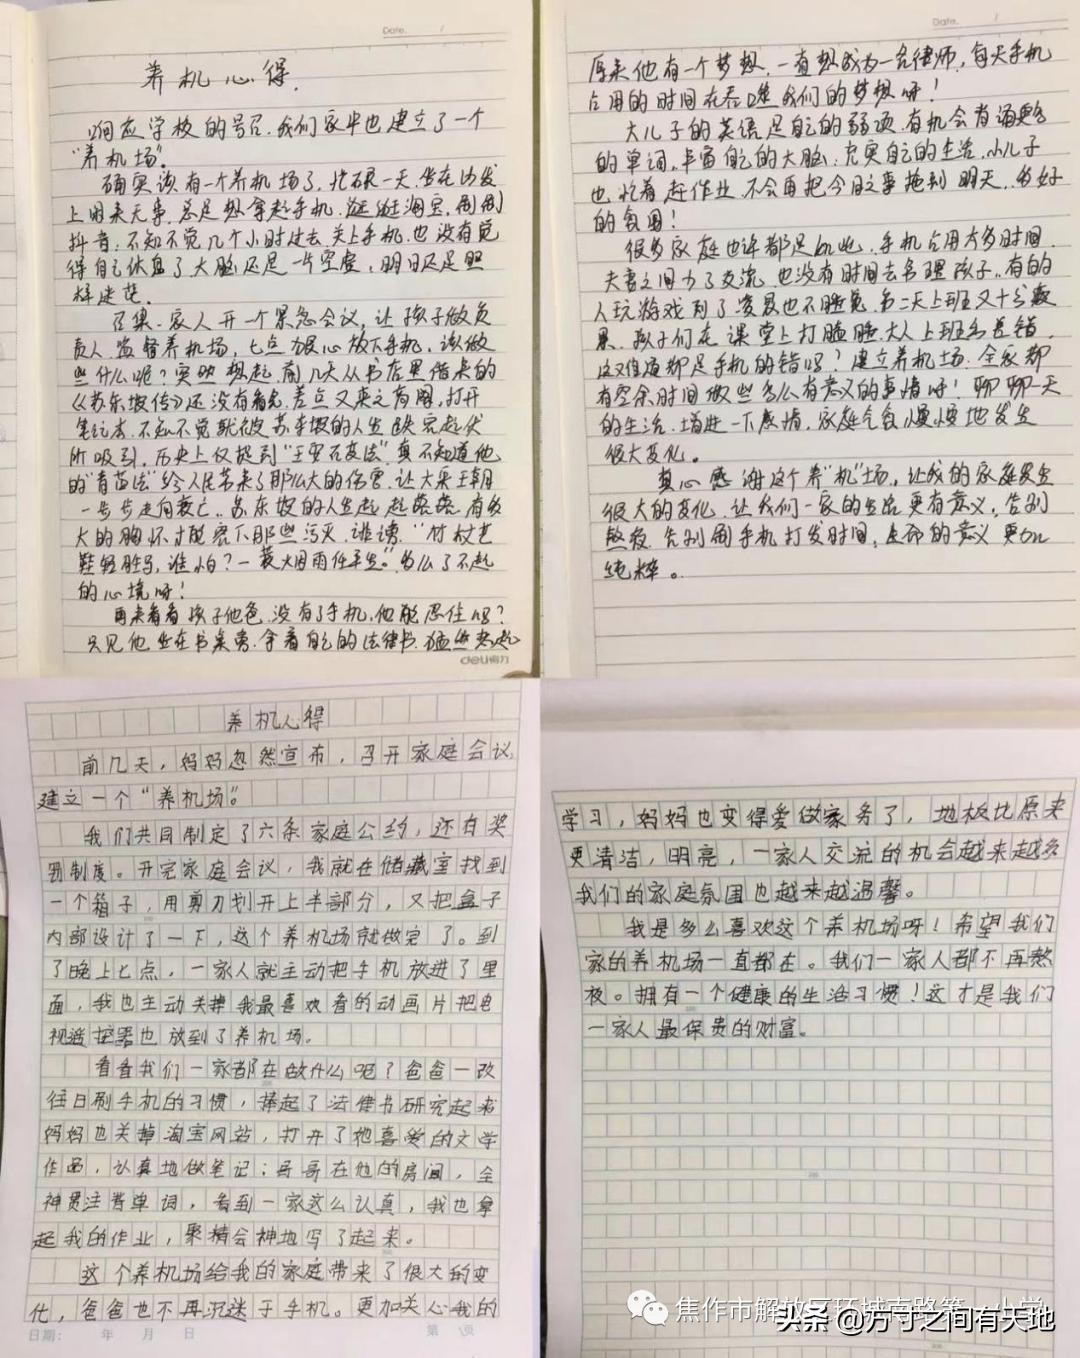 Date. /
养机心得.
响应学校的号召.我们家半也建立了一个
“养机场”.
确实该有一个养机场了,忙碌一天.坐在沙发
上闲来无事.总是想拿起手机.逛逛淘宝.刷刷
抖音.不知不觉几个小时过去.关上手机.也没有觉
得自己休息了大脑还是一片空虚,明日还是照
样迷茫.
召集家人开一个紧急会议,让孩子做负
责人.监督养机场,七点狠心放下手机,该做
些什么呢?突然想起前几天从书店里借来的
《苏东坡传》还没有看完.差点又束之高阁,打开
笔记本.不知不觉就被苏东坡的人生跌宕起伏
所吸引,历史上仅提到“王安石变法”真不知道他
的“青苗法”给人民带来了那么大的伤害.让大宋王朝
一步步走向衰亡..苏东坡的人生起起落落.有多
大的胸怀才能容下那些污灭.诽谤.“竹杖芒
鞋轻胜马,谁怕?一蓑烟雨任平生。”多么了不起
的心境呀!
再来看看孩子他爸.没有了手机.他能忍住吗?
只见他坐在书桌旁.拿着自己的法律书.
deli得力
Date. /
原来他有一个梦想.一直想成为一名律师,每天手机
占用的时间在吞噬我们的梦想呀!
大儿子的英语是自己的弱项.有机会背诵更多
的单词.丰富自己的大脑.充实自己的生活.小儿子
也忙着赶作业.不会再把今日之事拖到明天..多好
的氛围!
很多家庭也许都是如此.手机占用太多时间.
夫妻之间少了交流.也没有时间去管理孩子..有的
人玩游戏到了凌晨也不睡觉.第二天上班又十分疲
累.孩子们在课堂上打瞌睡.大人上班出差错.
这难道都是手机的错吗?建立养机场.全家都
有空余时间做些多么有意义的事情呀!聊聊一天
的生活.增进一下感情,家庭气氛慢慢地发生
很大变化。
真心感谢这个养“机”场,让我的家庭发生
很大的变化.让我们一家的生活更有意义,告别
熬夜.告别刷手机打发时间,生命的意义更加
纯粹。
养机心得
前几天,妈妈忽然宣布,召开家庭会议,
建立一个“养机场”。
我们共同制定了六条家庭公约,还有奖
罚制度。开完家庭会议,我就在储藏室找到
一个箱子,用剪刀划开上半部分,又把盒子
内部设计了一下,这个养机场就做完了。到
了晚上七点,一家人就主动把手机放进了里
面,我也主动关掉我最喜欢看的动画片把电
视遥控器也放到了养机场。
看看我们一家都在做什么呢?爸爸一改
往日刷手机的习惯,捧起了法律书研究起来
妈妈也关掉淘宝网站,打开了她喜爱的文学
作品,认真地做笔记;哥哥在他的房间,全
神贯注背单词,看到一家这么认真,我也拿
起我的作业,聚精会神地写了起来。
这个养机场给我的家庭带来了很大的变
化,爸爸也不再沉迷于手机。更加关心我的
日期: 年 月 日 第 页
学习,妈妈也变得爱做家务了,地板比原来
更清洁,明亮,一家人交流的机会越来越多
我们的家庭氛围也越来越温馨。
我是多么喜欢这个养机场呀!希望我们
家的养机场一直都在。我们一家人都不再熬
夜。拥有一个健康的生活习惯!这才是我们
一家人最保贵的财富。
焦作市解放区环城南路第一小学
头条 @方寸之间有天地